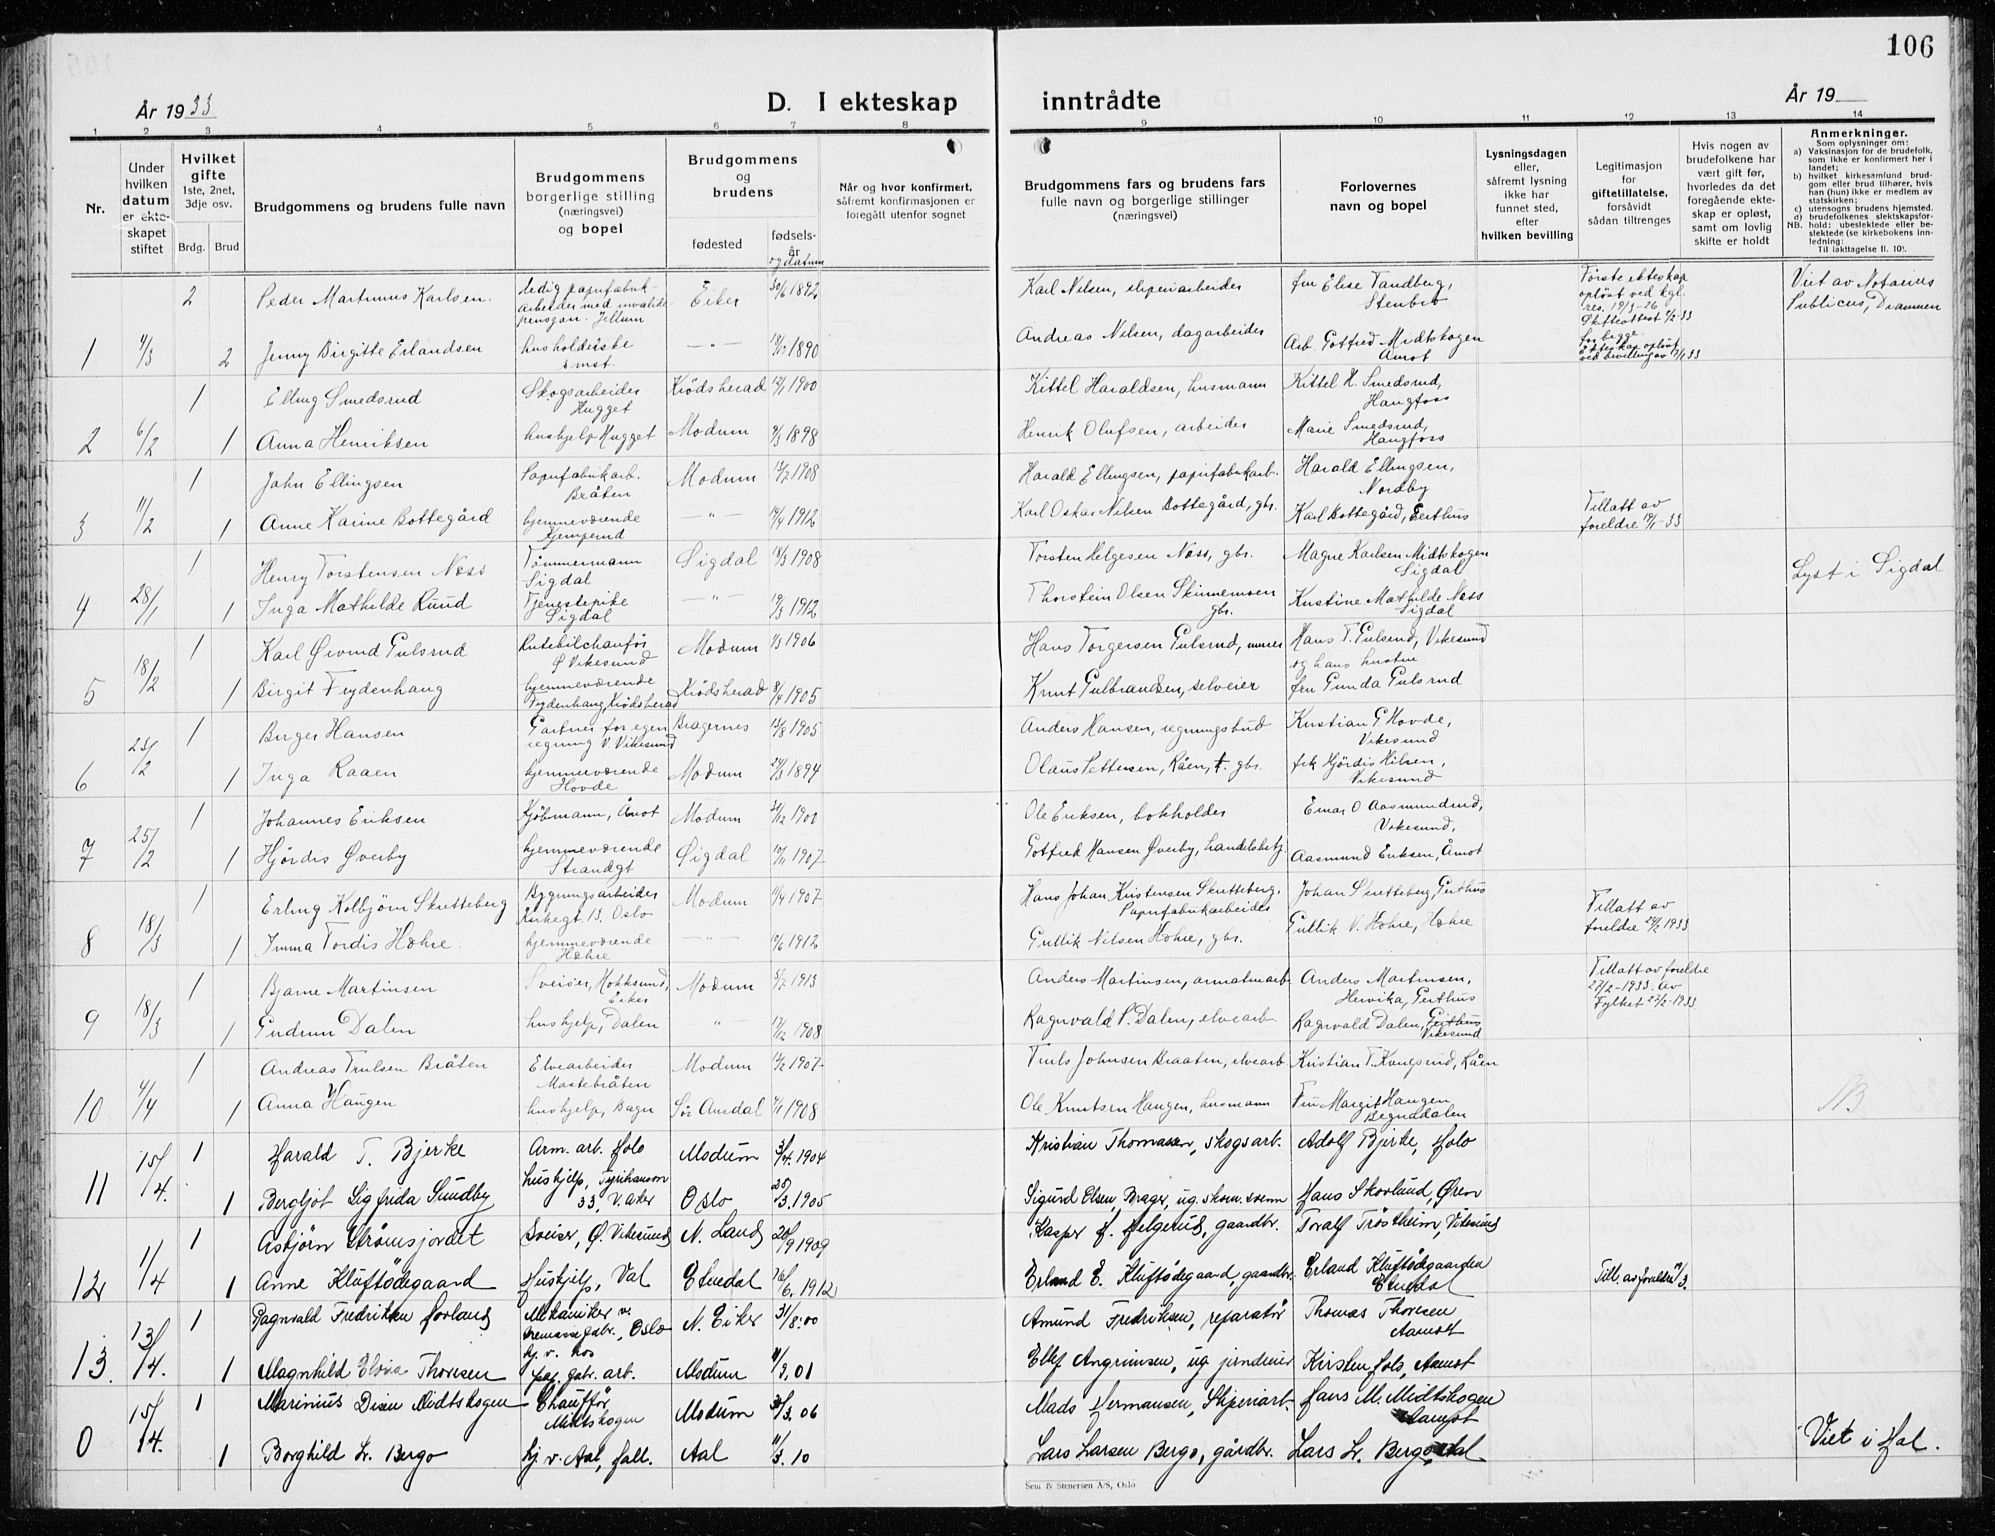 106
År 1933
D. I ekteskap inntrådte
År 19
1 2 3 4 5 6 7 8 9 10 11 12 13 14
Nr.
Under hvilken datum er ekteskapet stiftet
Hvilket gifte
1ste, 2net, 3dje osv.
Brdg. Brud
Brudgommens og brudens fulle navn
Brudgommens borgerlige stilling (næringsvei) og bopel
Brudgommens og brudens
fødested
fødselsår og datum
Når og hvor konfirmert, såfremt konfirmasjonen er foregått utenfor sognet
Brudgommens fars og brudens fars fulle navn og borgerlige stillinger (næringsvei)
Forlovernes navn og bopel
Lysningsdagen eller, såfremt lysning ikke har funnet sted, efter hvilken bevilling
Legitimasjon for giftetillatelse, forsåvidt sådan tiltrenges
Hvis nogen av brudefolkene har vært gift før, hvorledes da det foregående ekteskap er opløst, samt om lovlig skifte er holdt
Anmerkninger.
Som oplysninger om:
a) Vaksinasjon for de brudefolk, som ikke er konfirmert her i landet;
b) hvilket kirkesamfund brudgom eller brud tilhører, hvis han (hun) ikke er medlem av statskirken;
c) utensogns brudens hjemsted.
d) brudefolkenes slektskapsforhold: ubeslektede eller beslektede (se kirkebokens innledning:
NB.
Til iakttagelse II. 10).
2 Peder Martinus Karlsen. ledig papirfabrikarbeider med invalidepensjon. Eiker 30/6 1892 Karl Nilsen, sliperiarbeider fru Elise Tandberg, Stenbro Første ekteskap opløst ved kgl. res. 19/3-26 Skifteattest 2/2-33 for begge. Viet av Notarius Publicus, Drammen
1 4/3 2 Jenny Birgitte Erlandsen husholderske smst. — " — 1890 Andreas Nilsen, dagarbeider Arb. Gotfred Midtskogen Åmot Ekteskap opløst ved bevilling av
1 Elling Smedsrud Skogsarbeider Hugget Krødsherad 1900 Kittel Haraldsen, husmann Kittel H. Smedsrud, Haugfoss
2 6/2 1 Anna Henriksen hushjelp Hugget Modum 1898 Henrik Olufsen, arbeider Marie Smedsrud, Haugfoss
1 John Ellingsen Papirfabrikarb. Bråten Modum 1908 Harald Ellingsen, papirfabrikarb. Harald Ellingsen, Nordby
3 11/2 1 Anne Karine Bottegård hjemmeværende — " — 1912 Karl Oskar Nilsen Bottegård, gbr. Karl Bottegård, Geithus Tillatt av foreldre
1 Henry Torstensen Næss Tømmermann Sigdal Sigdal 1908 Torsten Helgesen Næss, gbr. Magne Karlsen Midtskogen Sigdal Lyst i Sigdal
4 28/1 1 Inga Mathilde Ruud Tjenestepike Sigdal — " — 1912 Thorstein Olsen Skinnemoen gbr. Kristine Mathilde Næss Sigdal
1 Karl Øivind Gulsrud Rutebilchauffør Ø Vikesund Modum 1906 Hans Torgersen Gulsrud, murer Hans T. Gulsrud, Vikesund og hans hustru
5 18/2 1 Birgit Frydenhaug hjemmeværende Frydenhaug, Krødsherad Krødsherad 8/4 1905 Knut Gulbrandsen, selveier fru Gunda Gulsrud
1 Birger Hansen Gartner for egen regning V. Vikesund Bragernes 1905 Anders Hansen, regningsbud Kristian G Hovde, Vikesund
6 25/2 1 Inga Raaen hjemmeværende Hovde Modum 1894 Olaus Pettersen, Råen, gbr. frk Hjördis Nilsen, Vikesund
1 Johannes Eriksen Kjøbmann, Åmot Modum 31/12 1900 Ole Eriksen, bokholder Einar O Aasmundrud, Vikesund,
7 25/2 1 Hjördis Øverby hjemmeværende Strandgt Sigdal 1907 Gotfred Hansen Øverby, handelsbetj. Aasmund Eriksen, Åmot
1 Erling Kolbjørn Skretteberg Bygningsarbeider Oslo Modum 1907 Hans Johan Kristensen Skretteberg, Papirfabrikarbeider Johan Skretteberg, Geithus
8 18/3 1 Imma Tordis Hæhre hjemmeværende Hæhre — " — 1912 Gullik Nilsen Hæhre, gbr. Gullik V. Hæhre, Hæhre Tillatt av foreldre 1933
1 Bjarne Martinsen Sveiser, Hokksund, Eiker Modum 1913 Anders Martinsen, armaturarb. Anders Martinsen, Geithus Tillatt av foreldre 27/2-1933. av Fylket 1933
9 18/3 1 Gudrun Dalen hushjelp, Dalen " 1908 Ragnvald P. Dalen, elvearb Ragnvald Dalen, Geithus Vikesund
1 Andreas Trulsen Bråten Elvearbeider Mastebråten Modum 1907 Truls Johnsen Braaten, elvearb Kristian T. Råen
10 4/4 1 Anna Haugen hushjelp, Bagn Sør Aurdal 1908 Ole Knutsen Haugen, husmann Fru Margit Haugen Begnadalen
1 Harald T. Bjerke Arm. arb. Holo Modum 3/4. 1904 Kristian Thomassen, skogsarb. Adolf Bjerke, Holo
11 15/4. 1 Bergljot Sigfrida Sundby hushjelp, 33, V. Aker Oslo 25/3. 1905 Sigurd Olsen, Brager, ug. skom. svenn Hans Skovlund, Øren
1 Asbjörn Strömsjordet Sveiser, Ø. Vikesund N. Land 20/9 1909 Kasper H. Helgerud, gaardbr. Toralf Tröstheim, Vikesund
12 1/4 1 Anne Kluftödegaard Hushjelp, Val Etnedal 26/6. 1912 Erland E. Kluftödegaard, gaardbr. Erland Kluftödegaarden Etnedal Till. av foreldre
1 Ragnvald Fredriksen Hovland Mekaniker v. Oslo N. Eiker 31/8.00 Amund Fredriksen, reparatör Thomas Thoresen Aamot
13. 13/4. 1 Magnhild Thoresen hj. v. hos pap. fabr. arb. Modum 01 Ellef Angrimsen, ug Kirsten Hols, Aamot
1 Marinius Disen Midtskogen Chauffør, Midtskogen Modum 06 Mads Hermansen, Sliperiarb. Hans M. Midtskogen Aamot
0 15/4. 1 Borghild L. Bergo hj. v. Aal, Hall. Aal 11/3. 10 Lars Larsen Bergo, gårdbr. Lars L. Bergo, Aal Viet i Hol.
Sem & Stenersen A/S, Oslo